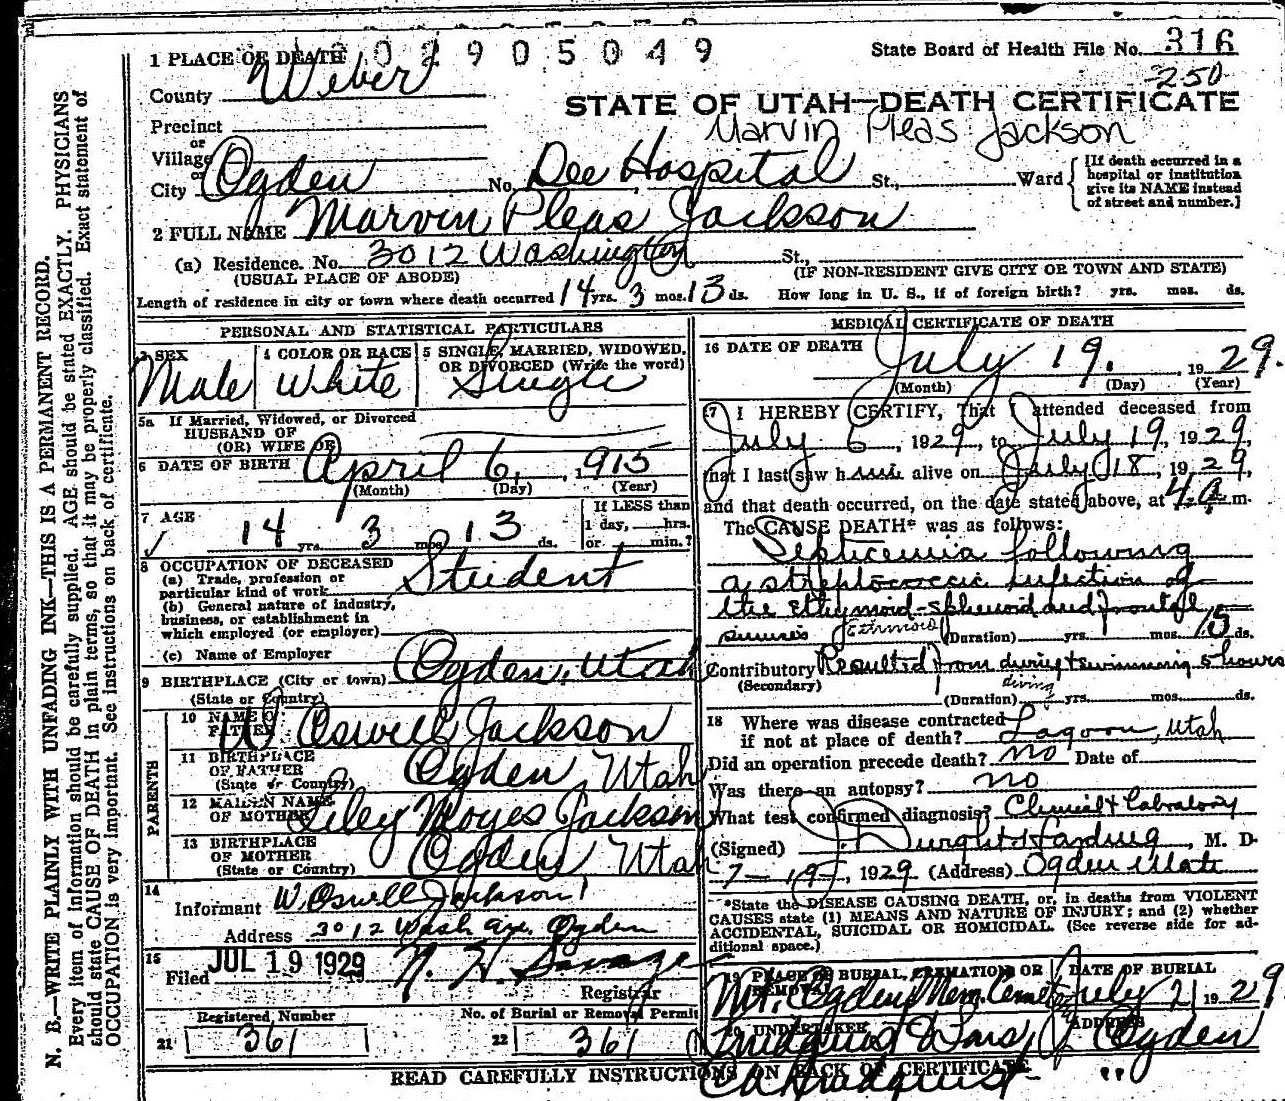 2 9 0 5 0 4 9
State Board of Health File No. 316
250
1 PLACE OF DEATH
County Weber
STATE OF UTAH—DEATH CERTIFICATE
Marvin Pleas Jackson
Precinct
or
Village
or
City Ogden No. Dee Hospital St., Ward
[If death occurred in a hospital or institution give its NAME instead of street and number.]
2 FULL NAME Marvin Pleas Jackson
(a) Residence. No. 3012 Washington St.,
(USUAL PLACE OF ABODE) (IF NON-RESIDENT GIVE CITY OR TOWN AND STATE)
Length of residence in city or town where death occurred 14 yrs. 3 mos. 13 ds. How long in U. S., if of foreign birth? yrs. mos. ds.
PERSONAL AND STATISTICAL PARTICULARS
3 SEX Male
4 COLOR OR RACE White
5 SINGLE, MARRIED, WIDOWED, OR DIVORCED (Write the word) Single
5a If Married, Widowed, or Divorced
HUSBAND OF
(OR) WIFE OF
6 DATE OF BIRTH April 6, 1915
(Month) (Day) (Year)
7 AGE 14 yrs. 3 mos. 13 ds.
If LESS than
1 day, hrs.
or min.?
8 OCCUPATION OF DECEASED
(a) Trade, profession or
particular kind of work Student
(b) General nature of industry,
business, or establishment in
which employed (or employer)
(c) Name of Employer
9 BIRTHPLACE (City or town) Ogden, Utah
(State or Country)
PARENTS
10 NAME OF
FATHER W Oswell Jackson
11 BIRTHPLACE
OF FATHER Ogden, Utah
(State or Country)
12 MAIDEN NAME
OF MOTHER Moyes Jackson
13 BIRTHPLACE
OF MOTHER Ogden, Utah
(State or Country)
14
Informant W. Oswell Jackson
Address 3012 Wash Ave. Ogden
15
Filed JUL 19 1929 N. H. Savage
Registrar
Registered Number
21 361
No. of Burial or Removal Permit
22 361
MEDICAL CERTIFICATE OF DEATH
16 DATE OF DEATH July 19. 1929.
(Month) (Day) (Year)
17 I HEREBY CERTIFY, That I attended deceased from
July 6, 1929, to July 19, 1929,
that I last saw him alive on July 18, 1929,
and that death occurred, on the date stated above, at 4 a m.
The CAUSE DEATH* was as follows:
Septicemia following
a streptococcic infection of
the ethymoid-sphenoid and frontal
sinuses Ethmoid (Duration) yrs. mos. 15 ds.
Contributory Resulted from diving & swimming 5 hours
(Secondary) diving
(Duration) yrs. mos. ds.
18 Where was disease contracted
if not at place of death? Lagoon, Utah
Did an operation precede death? no Date of
Was there an autopsy? no
What test confirmed diagnosis? Clinical & Labratory
(Signed) J. Dwight Harding, M. D.
7-19-, 1929 (Address) Ogden Utah
*State the DISEASE CAUSING DEATH, or, in deaths from VIOLENT
CAUSES state (1) MEANS AND NATURE OF INJURY; and (2) whether
ACCIDENTAL, SUICIDAL OR HOMICIDAL. (See reverse side for ad-
ditional space.)
19 PLACE OF BURIAL, CREMATION OR
REMOVAL Mt. Ogden Mem. Cemetery
DATE OF BURIAL
July 21 1929
20 UNDERTAKER Lindquist & Sons,
ADDRESS
Ogden
READ CAREFULLY INSTRUCTIONS ON BACK OF CERTIFICATE
N. B.—WRITE PLAINLY WITH UNFADING INK—THIS IS A PERMANENT RECORD.
Every item of information should be carefully supplied. AGE should be stated EXACTLY. PHYSICIANS
should state CAUSE OF DEATH in plain terms, so that it may be properly classified. Exact statement of
OCCUPATION is very important. See instructions on back of certificate.